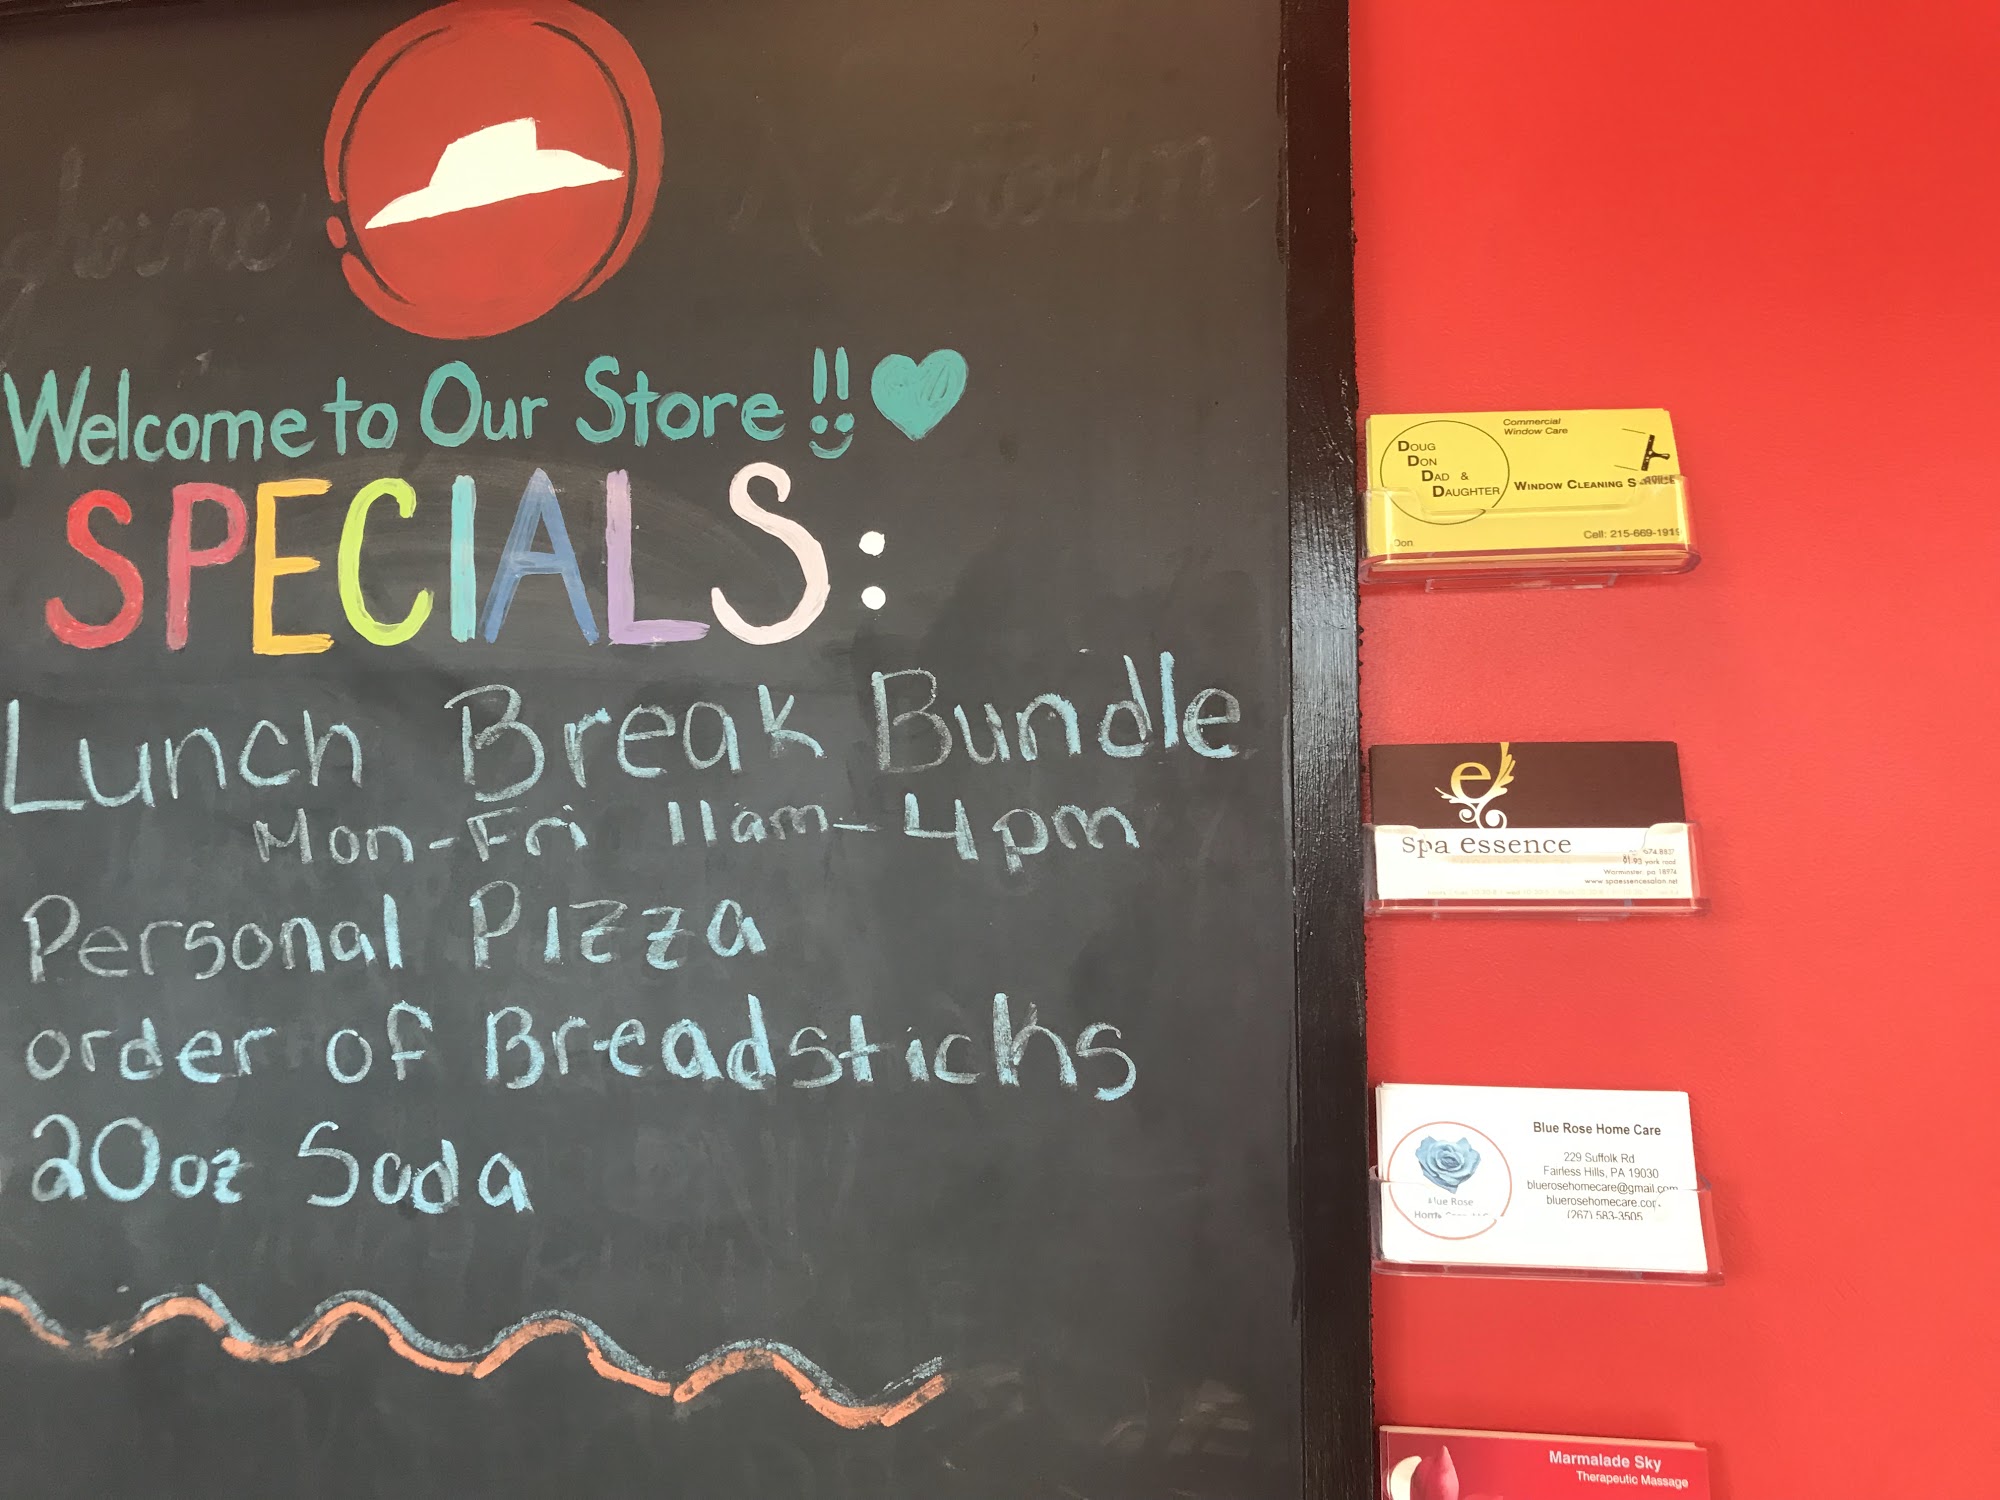 Welcome to Our Store !!
SPECIALS:
Lunch Break Bundle
Mon-Fri 11am-4pm
Personal Pizza
order of Breadsticks
20oz Soda
Commercial
Window Care
DOUG
DON
DAD &
DAUGHTER
WINDOW CLEANING SERVICE
Don
Cell: 215-669-1919
e
spa essence
york road
Warminster, pa 18974
www.spaessencesalon.net
Blue Rose Home Care
229 Suffolk Rd
Fairless Hills, PA 19030
bluerosehomecare@gmail.com
bluerosehomecare.com
(267) 583-3505
Blue Rose
Home
Marmalade Sky
Therapeutic Massage